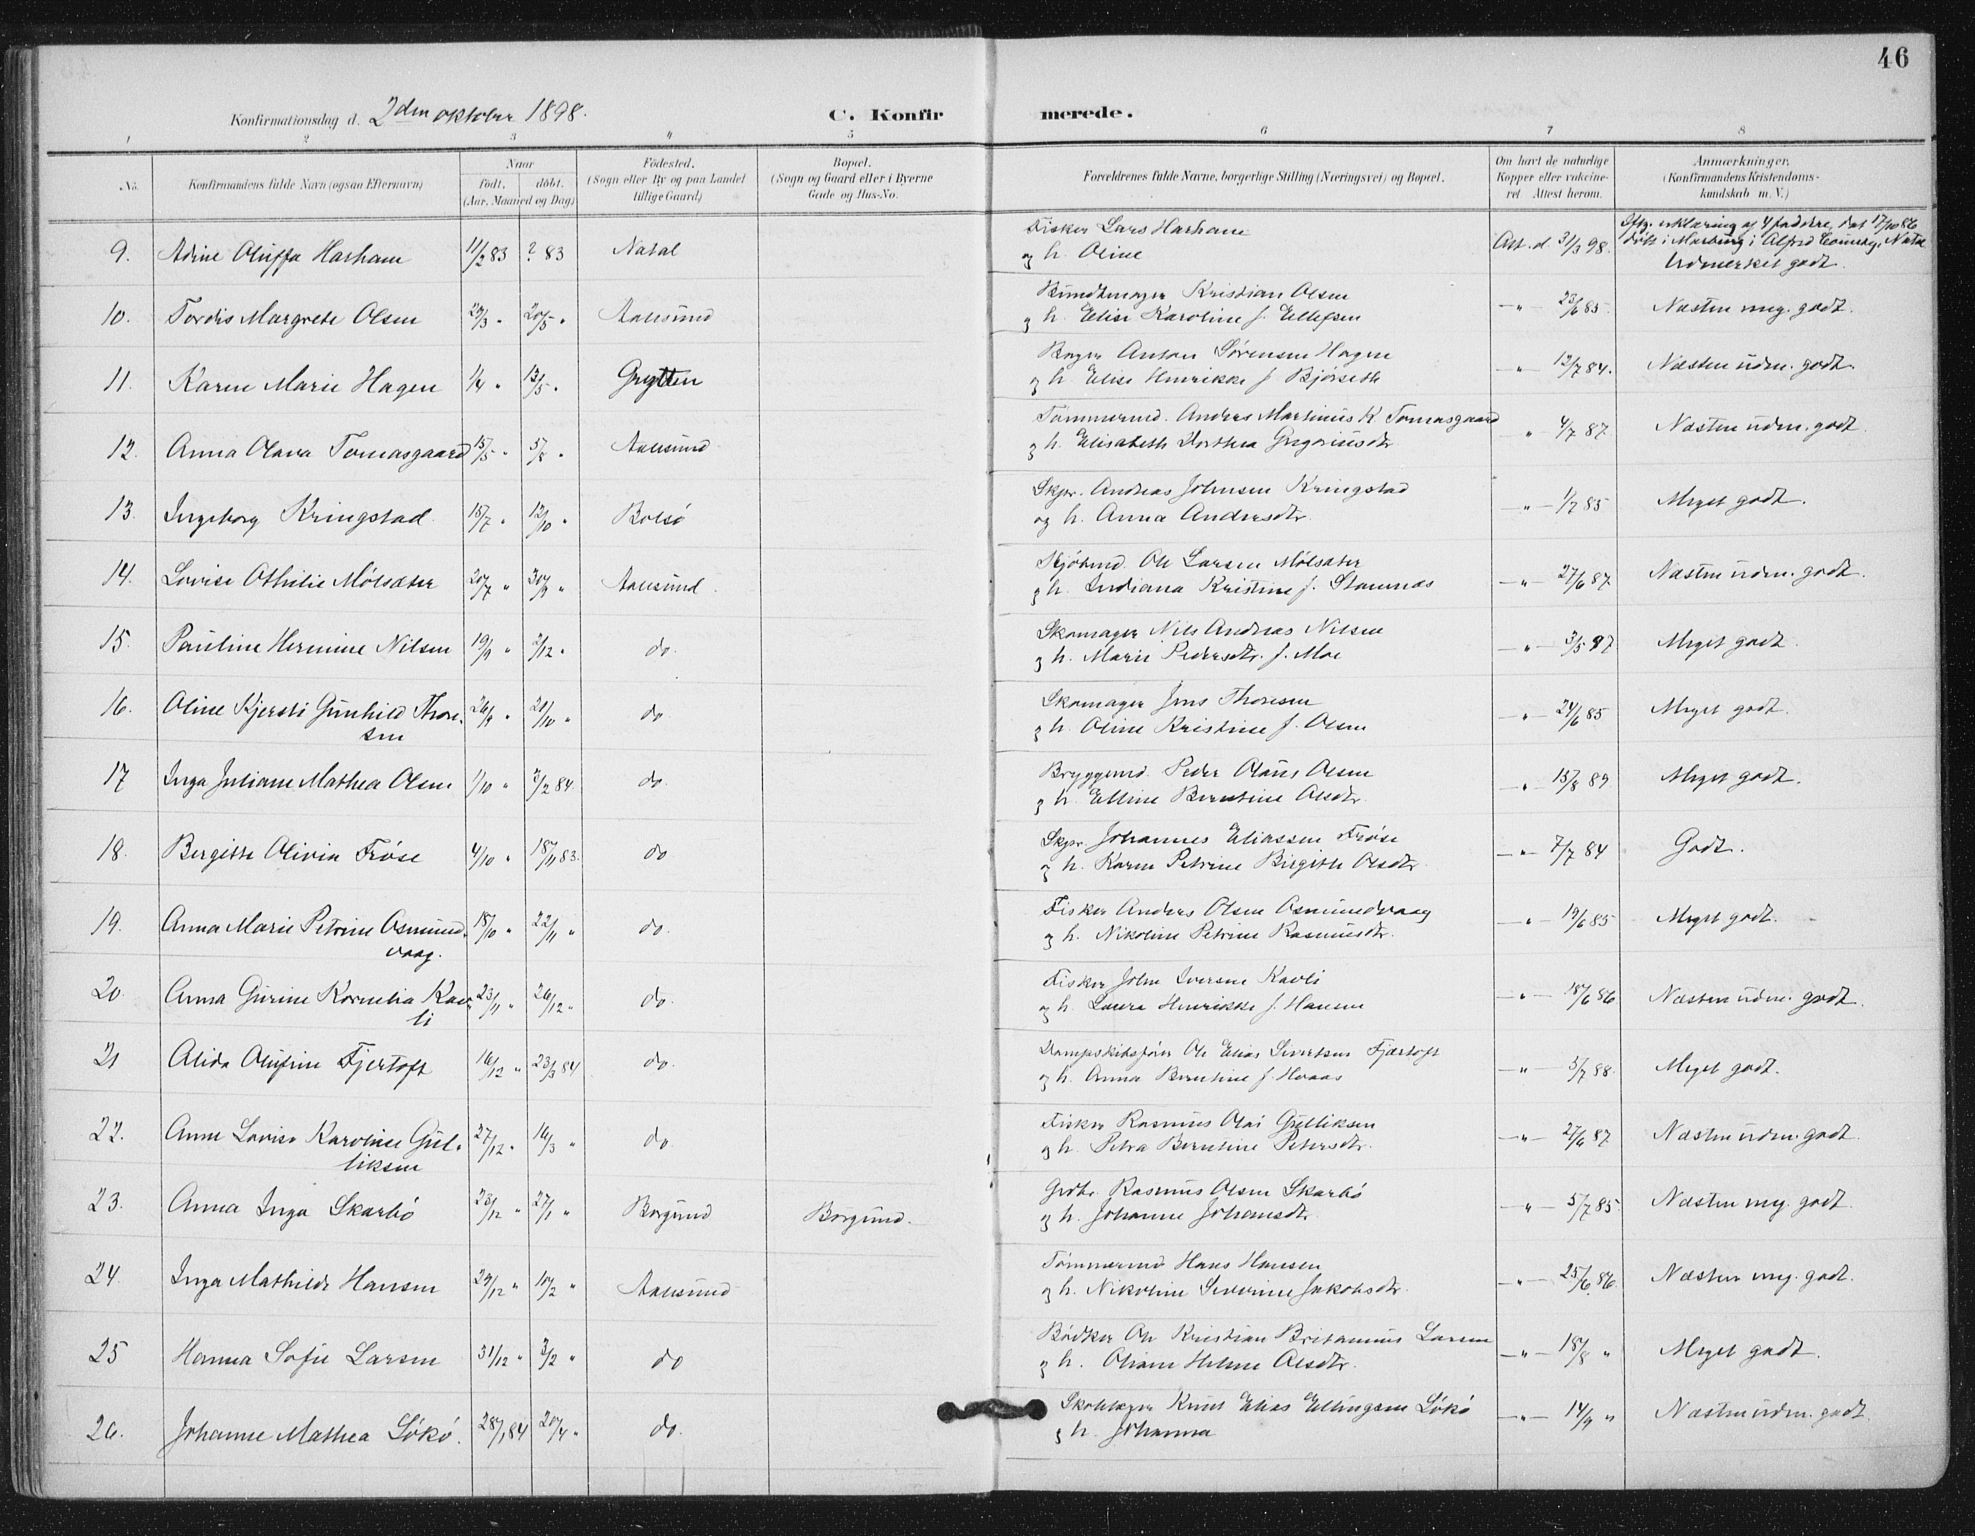 46
Konfirmationsdag d. 2den oktober 1898.
C. Konfirmerede.
1 2 3 4 5 6 7 8
No.
Konfirmandens fulde Navn (ogsaa Efternavn)
Naar
födt. döbt.
(Aar. Maaned og Dag)
Födested.
(Sogn eller By og paa Landet
tillige Gaard)
Bopæl.
(Sogn og Gaard eller i Byerne
Gade og Hus-No.
Forældrenes fulde Navne, borgerlige Stilling (Næringsvei) og Bopæl.
Om havt de naturlige
Kopper eller vakcine-
ret. Attest herom.
Anmærkninger.
(Konfirmandens Kristendoms-
kundskab m. V.)
9. Adine Oluffa Harham 11/2 83 ? 83 Natal
Fisker Lars Harham
og h. Oline
Att. d. 31/3 98.
Iflg. erklæring af 4 faddere, dat 17/10 86
döbt i Marburg i Alfred County, Natal
Udmerket godt.
10. Tordis Margrete Olsen 29/3 " 20/5 " Aalesund
Bundtmager Kristian Olsen
og h. Elise Karoline f. Ellefsen
—"— 23/6 85. Næsten meg. godt.
11. Karen Marie Hagen 1/4 " 13/5 " Grytten
Bager Anton Sørensen Hagen
og h. Elise Henrikke f. Bjørseth
—"— 12/7 84. Næsten udm. godt.
12. Anna Olava Tomasgaard 15/5 " 5/8 " Aalesund
Tømmermd. Anders Martinus K. Tomasgaard
og h. Elisabeth Dorthea Gregoriusdtr
" — 4/7 87. Næsten udm. godt.
13. Ingeborg Kringstad 15/7 " 12/10 " Bolsø
Skpr. Andreas Johnsen Kringstad
og h. Anna Andersdtr.
—"— 1/7 85 Meget godt.
14. Lovise Othilie Mølsæter 20/7 " 30/9 " Aalesund
Ole Larsen Mølsæter
og h. Indiana Kristine f. Stamnes
—"— 27/6 87 Næsten udm. godt.
15. Pauline Hermine Nilsen 19/9 " 2/12 " do.
Skomager Nils Andreas Nilsen
og h. Marie Pedersdtr. f. Moe
—"— 3/5 87 Meget godt.
16. Oline Kjersti Gunhild Thore-
sen 26/9 " 21/10 " do
Skomager Jens Thoresen
og h. Oline Kristine f. Olsen
" — 24/6 85 Meget godt.
17 Inga Juliane Mathea Olsen 1/10 " 2/2 84. do.
Bryggemd. Peder Olaus Olsen
og h. Elline Berntine Olsdtr.
" — 15/8 89 Meget godt.
18. Bergitte Olivia Frøse 4/10 " 18/11 83. do
Skpr Johannes Eliassen Frøse
og h. Karen Petrine Birgitte Olsdtr.
—"— 7/7 84 Godt.
19. Anna Marie Petrine Osmund-
vaag. 18/10 " 22/11 " do.
Fisker Anders Olsen Osmundvaag
og h. Nikoline Petrine Rasmusdtr.
—"— 19/6 85 Meget godt.
20. Anna Gurine Kornelia Kav-
li 23/11 " 26/12 " do.
Fisker John Iversen Kavli
og h. Laura Henrikke f. Hansen
—"— 18/6 86 Næsten udm. godt.
21 Alida Olufine Fjertoft 16/12 " 23/3 84 do.
Dampskibsfører Ole Elias Sivertsen Fjærtoft
og h. Anna Berntine f. Hovaas
—"— 5/7 88. Meget godt.
22. Anne Lovise Karoline Gul-
liksen 27/12 " 16/3 " do
Fisker Rasmus Olai Gulliksen
og h. Petra Berntine Petersdtr.
—"— 27/6 87 Næsten udm. godt.
23. Anna Inga Skarbø 23/12 " 27/1 " Borgund Borgund.
Grdbr. Rasmus Olsen Skarbø
og h. Johanne Johansdtr.
—"— 5/7 85. Næsten meg. godt
24. Inga Mathilde Hansen 29/12 " 10/2 " Aalesund
Tømmermd Hans Hansen
og h. Nikoline Severine Jakobsdtr.
—"— 25/6 86. Næsten meg. godt.
25 Hanna Sofie Larsen 31/12 " 3/2 " do
Bødker Ole Kristian Britanius Larsen
og h. Oliane Helene Olsdtr.
—"— 18/8 " Meget godt.
26. Johanne Mathea Søkø. 28/1 84 20/4 " do.
Knut Elias Ellingsen Søkø
og h. Johanna
—"— 14/9 " Næsten udm. godt.